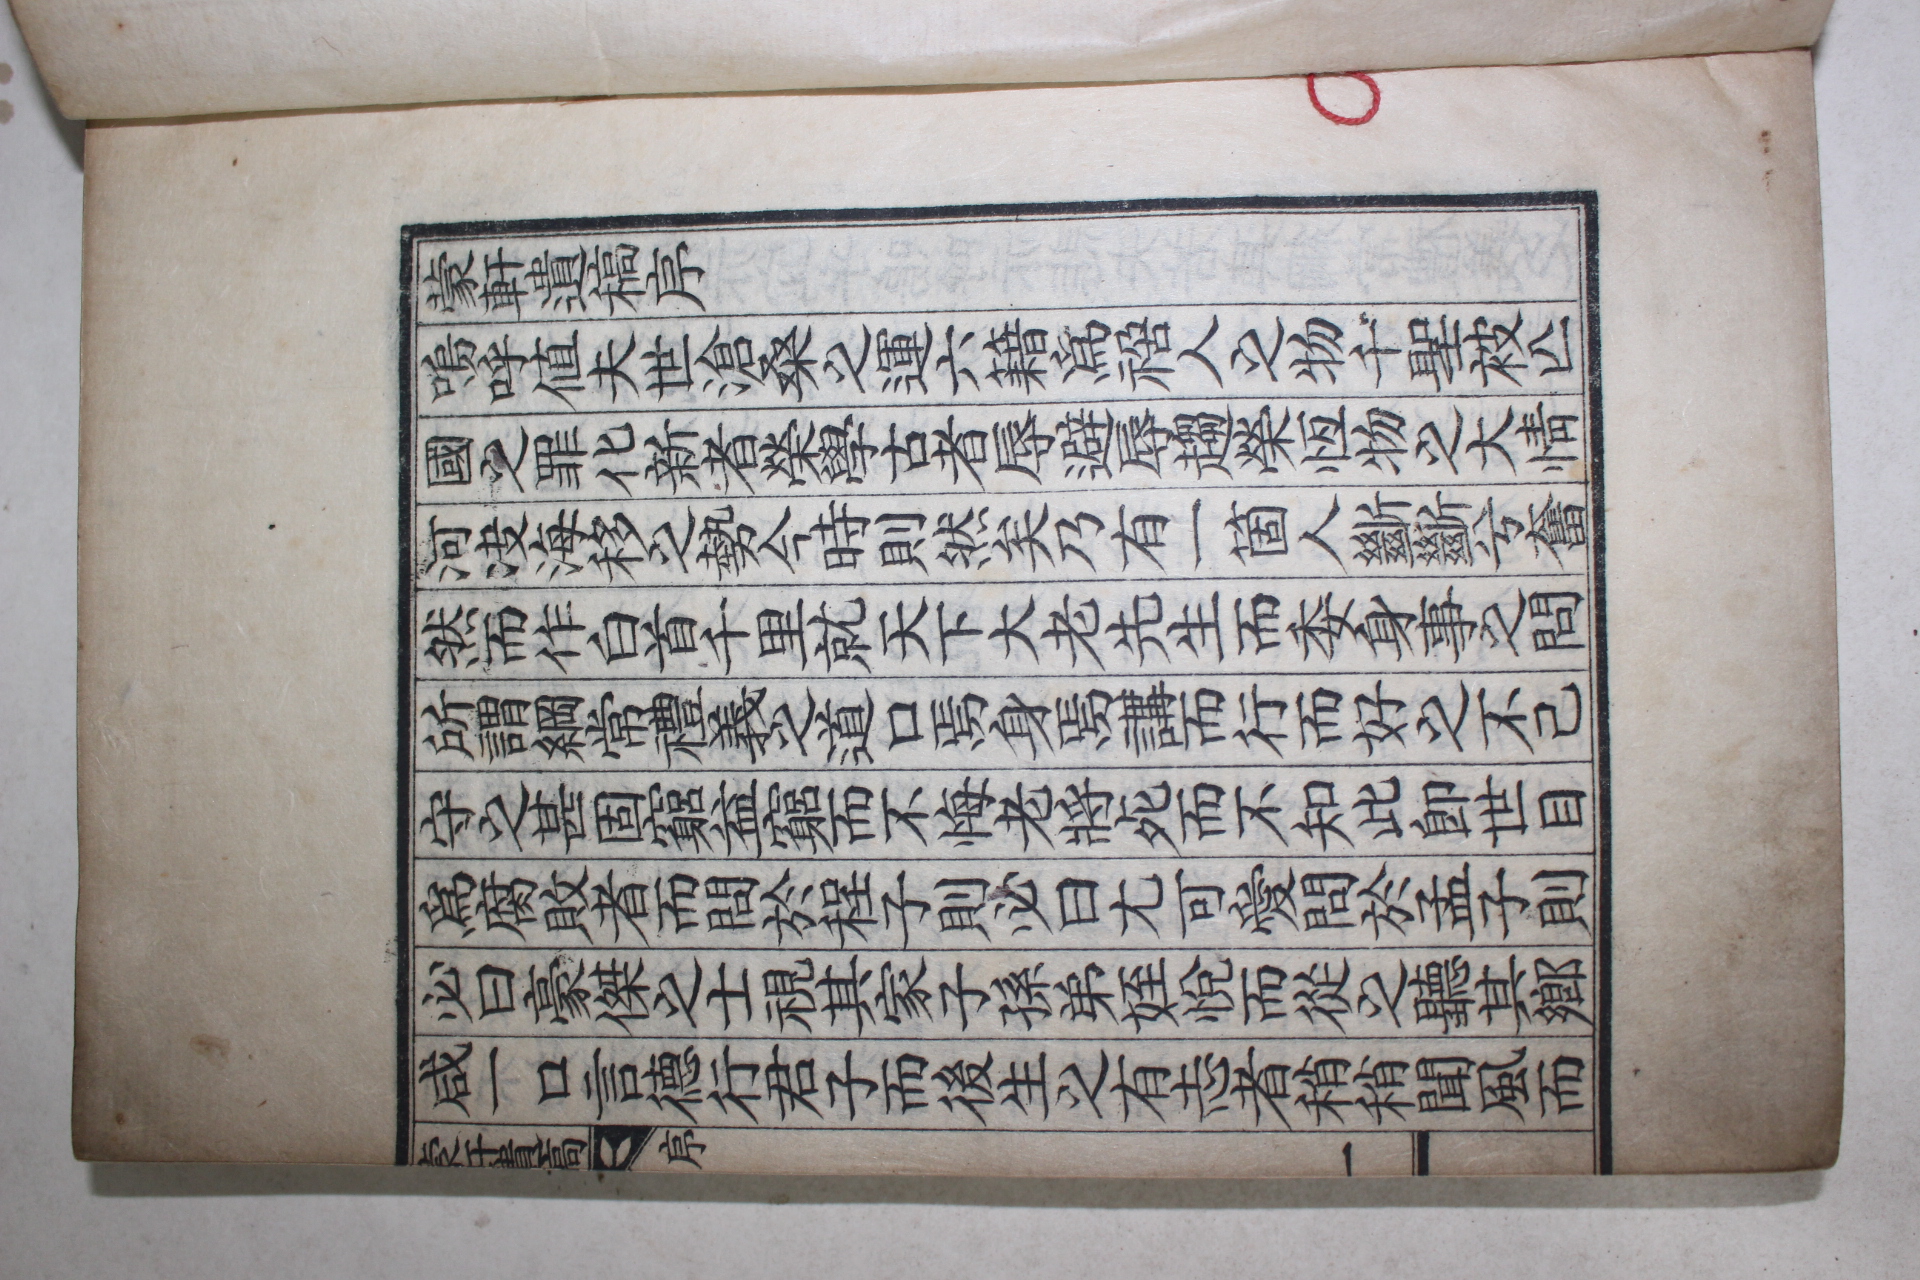 蒙軒遺稿序
嗚呼値夫世滄桑之運六藉爲祸人之物千聖被亾
國之罪化新者榮學古者辱避辱趨榮恒物之大情
河决海移之勢今時則然矣乃有一箇人斷斷兮奮
然而作白首千里就天下大老先生而委身事之問
所謂綱常禮義之道口焉身焉講而行而好之不已
守之甚固窮益窮而不悔老將死而不知此卽世目
爲腐敗者而問於程子則必曰尤可愛問於孟子則
必曰豪傑之士視其家子孫弟姪悅而從之聽其鄕
咸一口言德行君子而後生之有志者稍稍聞風而
蒙軒遺稿 序 一